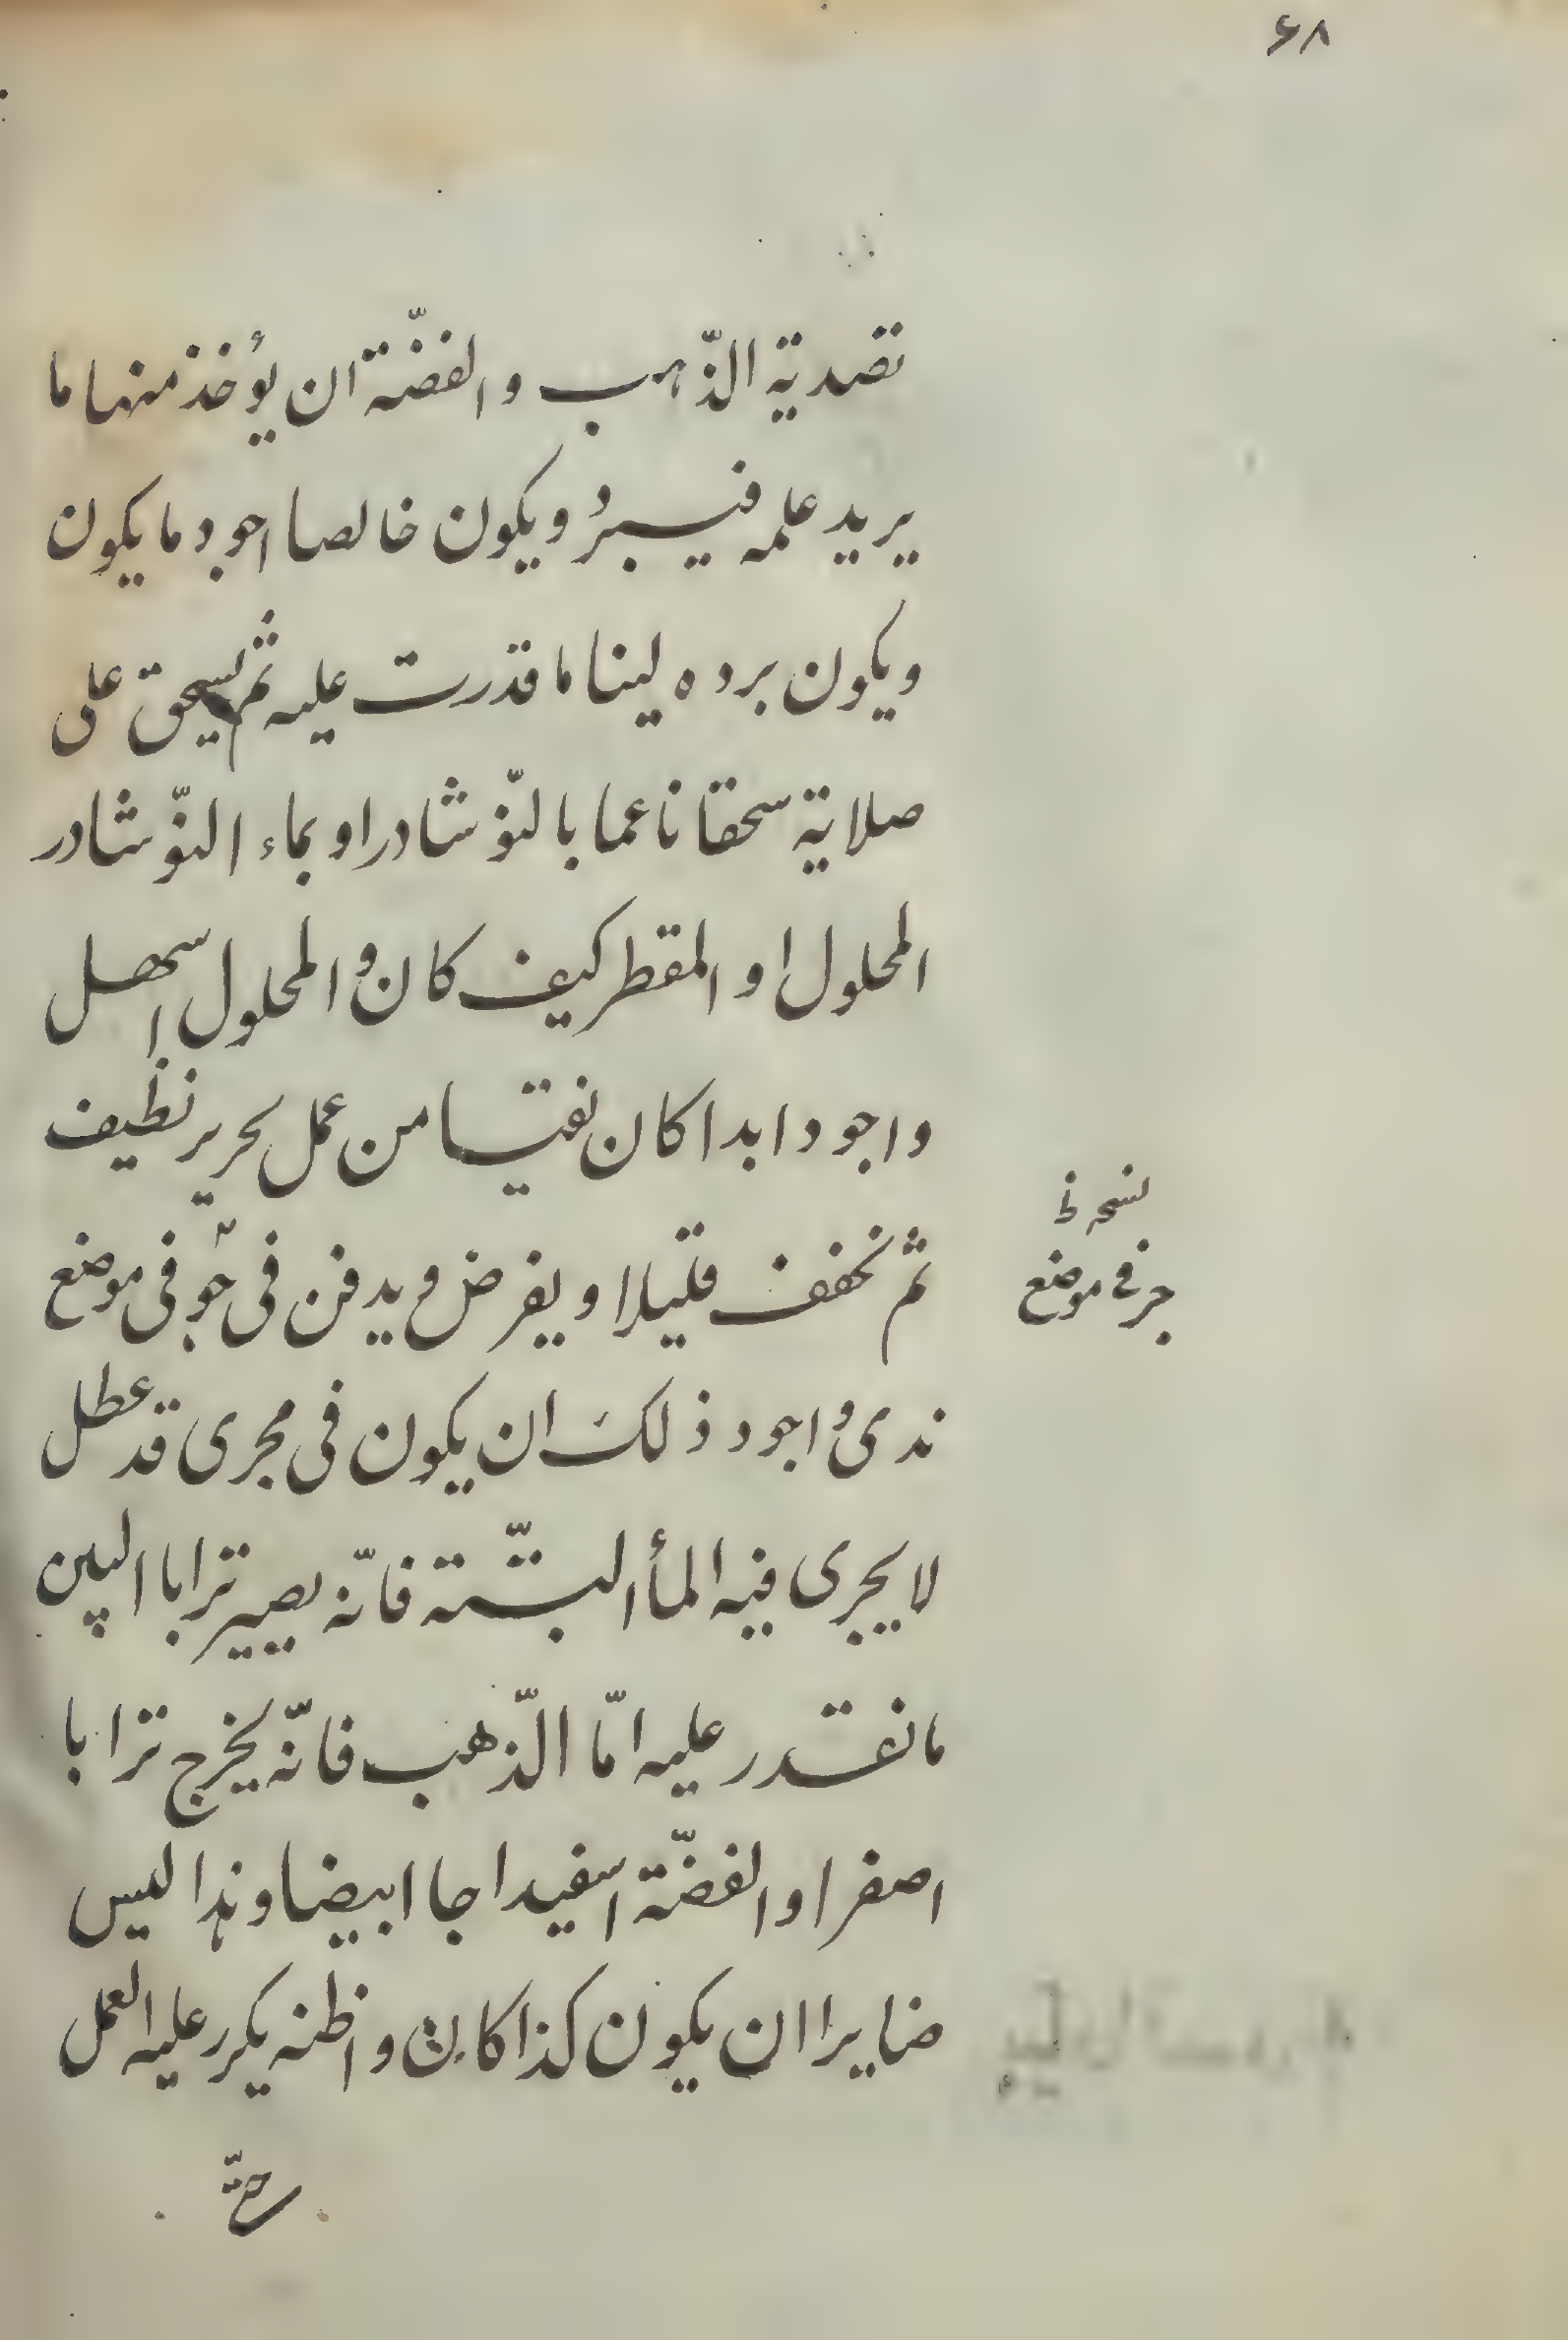 ۶۸
تصدية الذّهب والفضّة ان يؤخذ منها ما
يريد علمه فيبرُد ويكون خالصا اجود ما يكون
ويكون برده لينا ما قدرت عليه ثم يسحق على
صلاية سحقا ناعما بالنّوشادر او بماء النّوشادر
المحلول او المقطر كيف كان والمحلول اسهل
واجود ابدا كان نفتيا من عمل بحرير نظيف
ثم نخفف قليلا ويفرض ويدفن في جوّ في موضع
نسخه
جر في موضع
ندى واجود ذلك ان يكون في مجرى قد عطل
لا يجرى فيه المأ البتّة فانّه يصير ترابا الين
ما نقدر عليه امّا الذّهب فانّه يخرج ترابا
اصفرا والفضّة اسفيداجا ابيضا وهذا ليس
ضايرا ان يكون كذا كان واظنه يكرر عليه العمل
حتّى